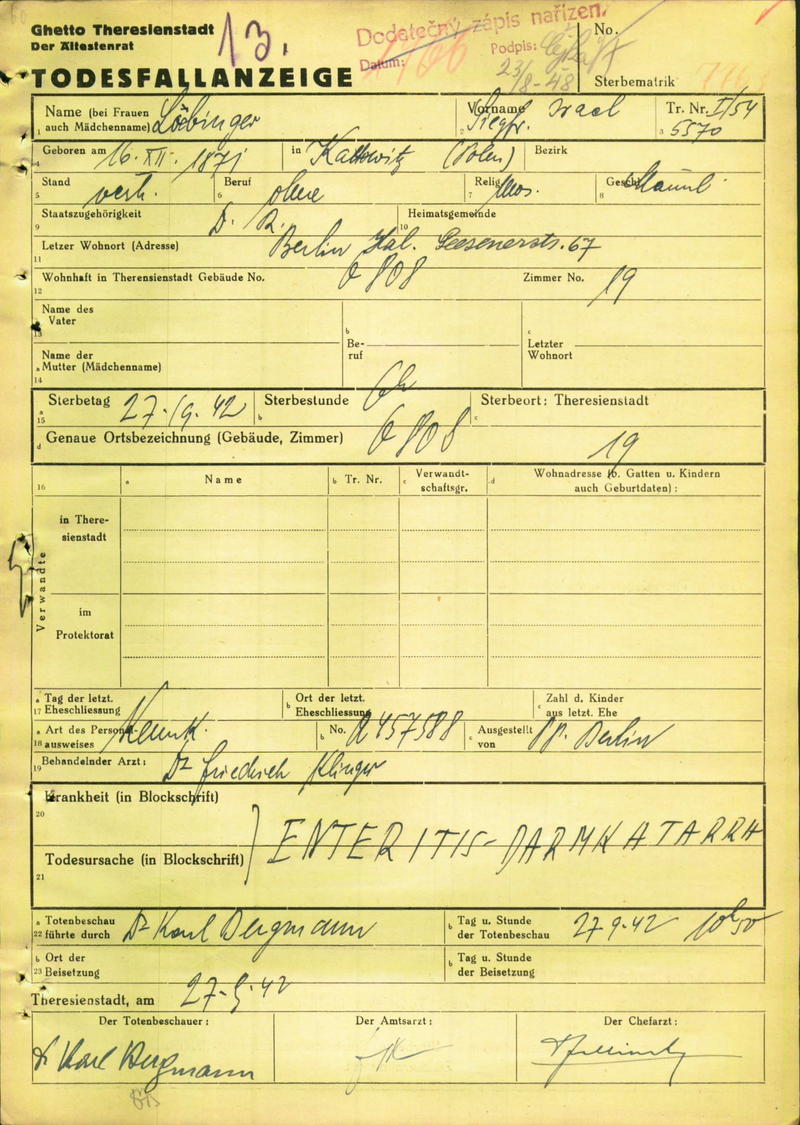 Ghetto Theresienstadt
Der Ältestenrat
13.
Dodatečný zápis nařízen.
Datum: 23/8-48 Podpis:
No.
Sterbematrik
TODESFALLANZEIGE
Name (bei Frauen auch Mädchenname) Löbinger
1
Vorname Siegfr. Israel
2
Tr. Nr. I/54 5570
3
Geboren am 16. XII. 1871 in Kattowitz (Polen) Bezirk
4
Stand verh. Beruf ohne Relig. Mos. Geschl. Männl.
5 6 7 8
Staatszugehörigkeit D. R. Heimatsgemeinde
9 10
Letzer Wohnort (Adresse) Berlin Hal. 67
11
Wohnhaft in Theresienstadt Gebäude No. Q 808 Zimmer No. 19
12
Name des Vater
13
b Beruf
c Letzter Wohnort
Name der
a Mutter (Mädchenname)
14
a Sterbetag 27. 9. 42 b Sterbestunde 6h c Sterbeort: Theresienstadt
15
d Genaue Ortsbezeichnung (Gebäude, Zimmer) Q 808 19
16 a Name b Tr. Nr. c Verwandtschaftsgr. d Wohnadresse (b. Gatten u. Kindern auch Geburtdaten):
Verwandte
in Theresienstadt
im Protektorat
a Tag der letzt. 17 Eheschliessung b Ort der letzt. Eheschliessung c Zahl d. Kinder aus letzt. Ehe
a Art des Personalausweises Kennk. b No. A 457588 c Ausgestellt von Pp. Berlin
18
Behandelnder Arzt: Dr Friedrich Klinger
19
Krankheit (in Blockschrift)
20
ENTERITIS - DARMKATARRH
Todesursache (in Blockschrift)
21
a Totenbeschau 22 führte durch Dr Karl Bergmann b Tag u. Stunde der Totenbeschau 27. 9. 42 10h50
b Ort der 23 Beisetzung b Tag u. Stunde der Beisetzung
Theresienstadt, am 27. 9. 42
Der Totenbeschauer: Der Amtsarzt: Der Chefarzt:
Dr Karl Bergmann